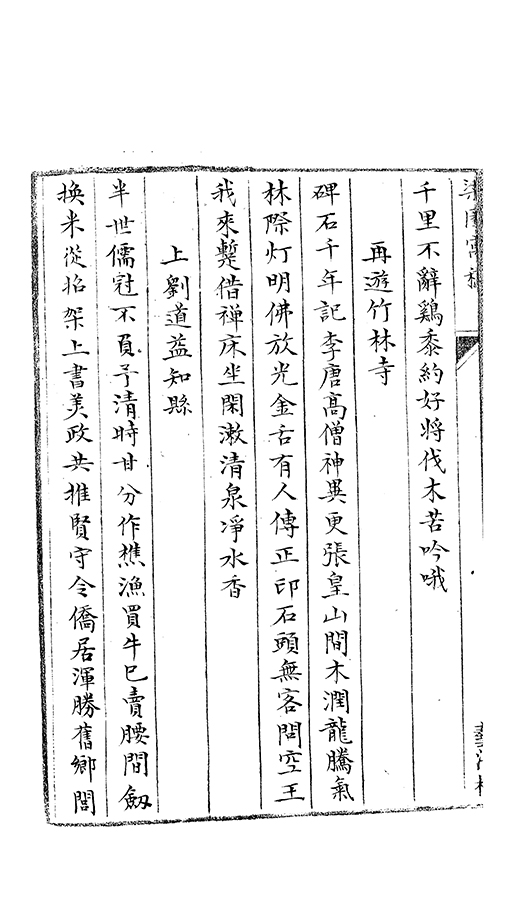 千里不辭鷄黍約好將伐木苦吟哦
再遊竹林寺
碑石千年記李唐高僧神異更張皇山間木潤龍騰氣
林際灯明佛放光金舌有人傳正印石頭無客問空王
我來蹔借禅床坐閑漱清泉凈水香
上劉道益知縣
半世儒冠不負予清時甘分作樵漁買牛已賣腰間劔
換米從拾架上書美政共推賢守令僑居渾勝舊鄉閭